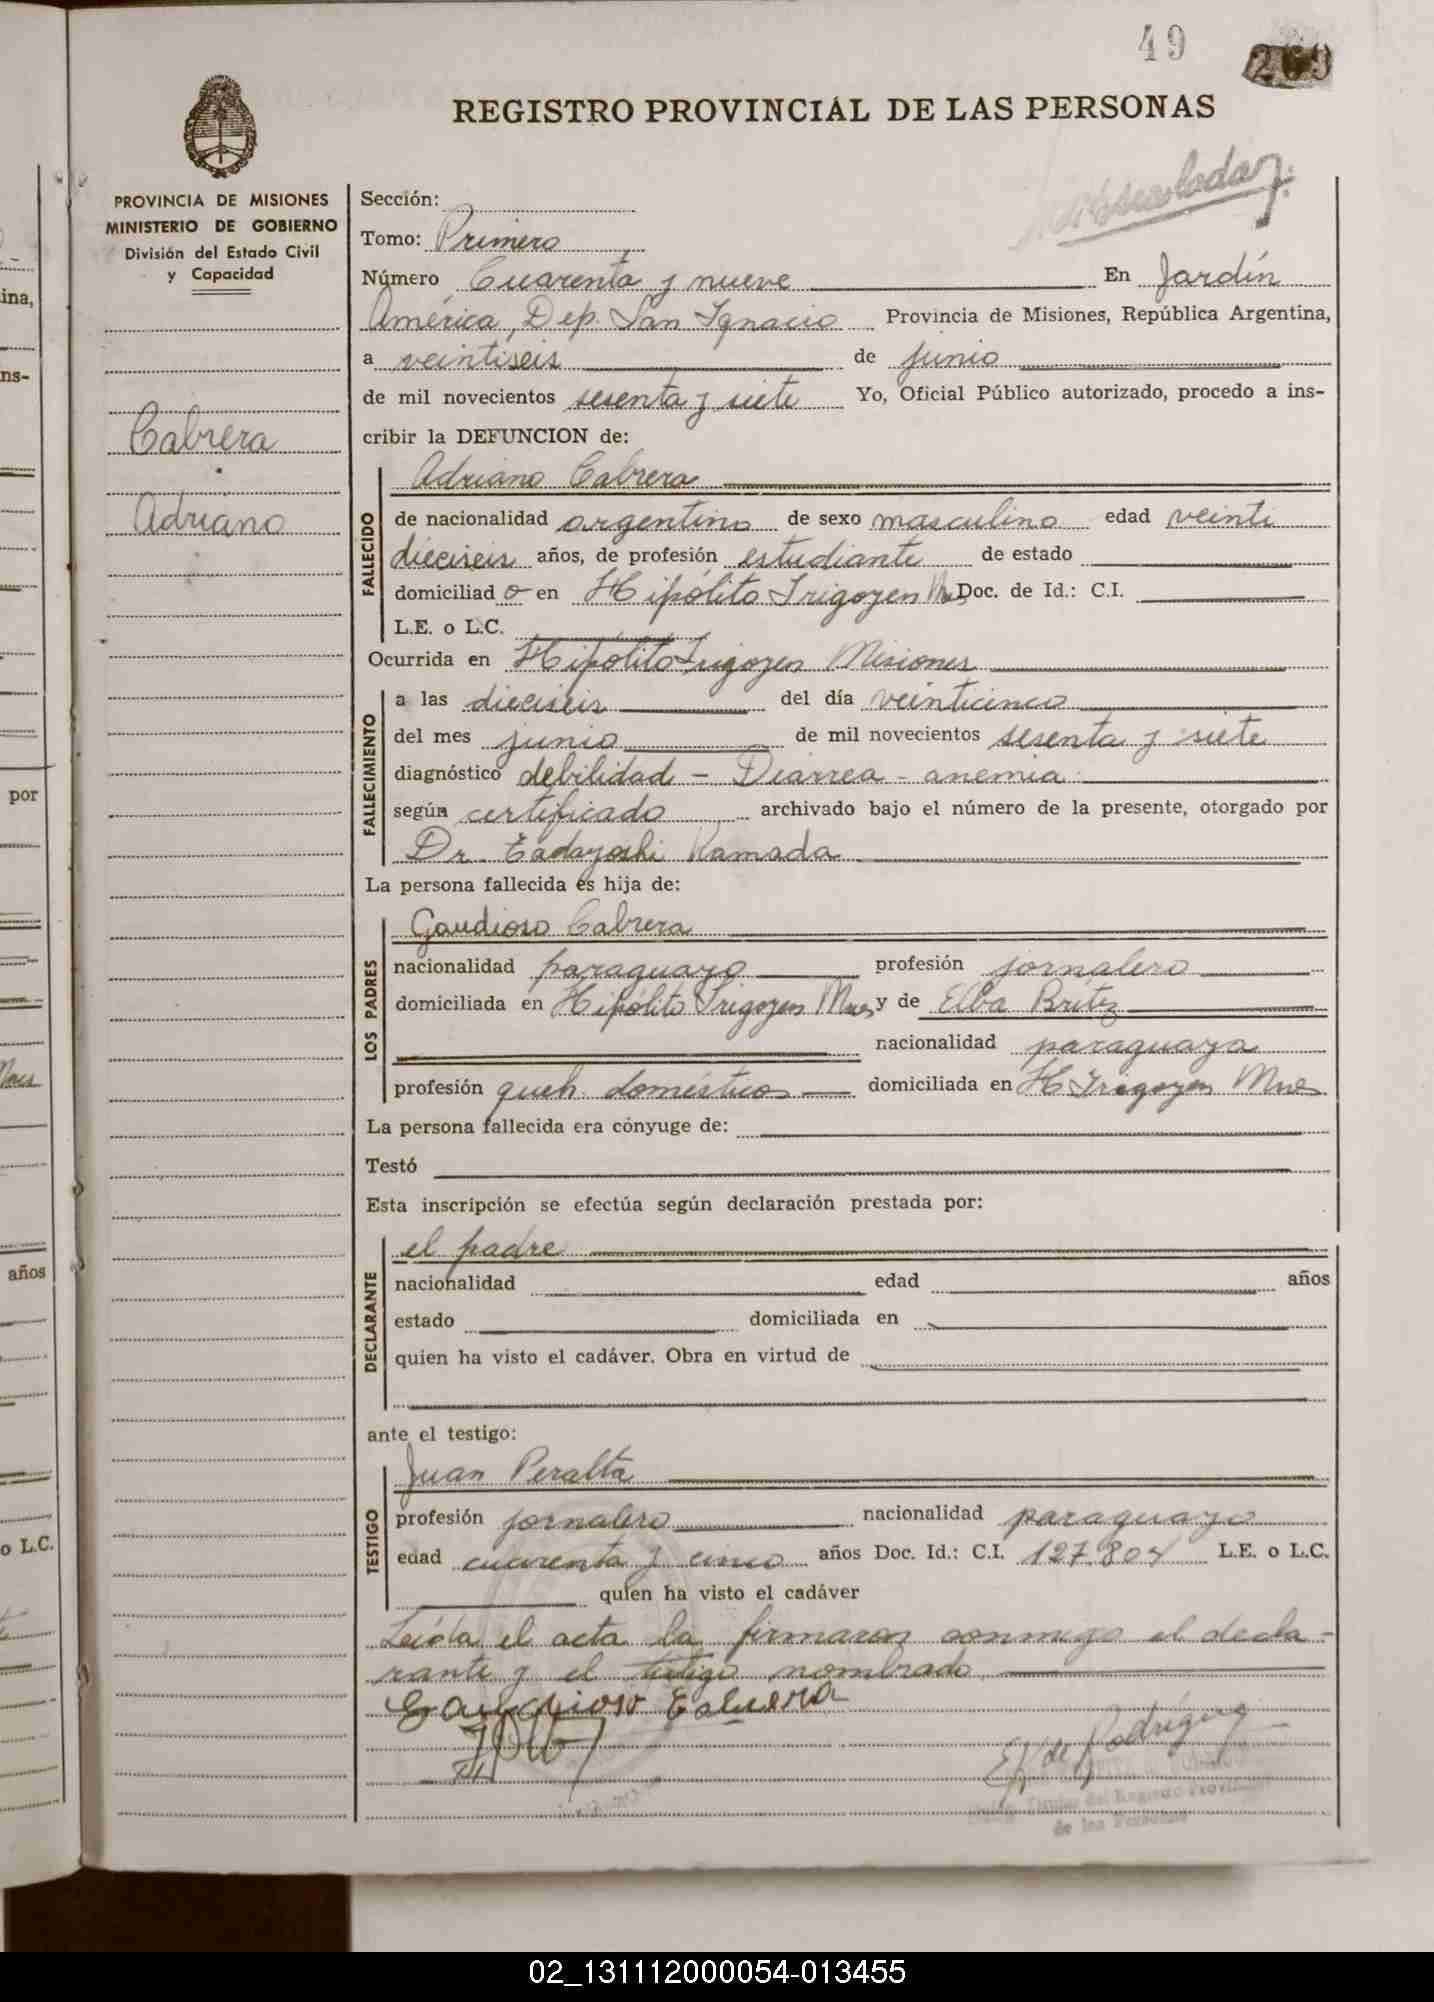 49
269
REGISTRO PROVINCIAL DE LAS PERSONAS
PROVINCIA DE MISIONES
MINISTERIO DE GOBIERNO
División del Estado Civil
y Capacidad
Cabrera
Adriano
Sección:
Tomo: Primero
Número Cuarenta y nueve En Jardín
América, Dep. San Ignacio Provincia de Misiones, República Argentina,
a veintiseis de junio
de mil novecientos sesenta y siete Yo, Oficial Público autorizado, procedo a ins-
cribir la DEFUNCION de:
Adriano Cabrera
FALLECIDO
de nacionalidad argentino de sexo masculino edad veinti
dieciseis años, de profesión estudiante de estado
domiciliad o en Hipólito Irigoyen Mnes Doc. de Id.: C.I.
L.E. o L.C.
Ocurrida en Hipólito Irigoyen Misiones
FALLECIMIENTO
a las dieciseis del día veinticinco
del mes junio de mil novecientos sesenta y siete
diagnóstico debilidad - Diarrea - anemia
según certificado archivado bajo el número de la presente, otorgado por
Dr. Tadayoshi Kamada
La persona fallecida es hija de:
Gaudioso Cabrera
LOS PADRES
nacionalidad paraguayo profesión jornalero
domiciliada en Hipólito Irigoyen Mnes y de Elba Britez
nacionalidad paraguaya
profesión queh. domésticos domiciliada en H Irigoyen Mnes
La persona fallecida era cónyuge de:
Testó
Esta inscripción se efectúa según declaración prestada por:
el padre
DECLARANTE
nacionalidad edad años
estado domiciliada en
quien ha visto el cadáver. Obra en virtud de
ante el testigo:
Juan Peralta
TESTIGO
profesión jornalero nacionalidad paraguayo
edad cuarenta y cinco años Doc. Id.: C.I. 127.804 L.E. o L.C.
quien ha visto el cadáver
Leída el acta la firmaron conmigo el decla-
rante y el testigo nombrado
Gaudioso Cabrera
de Rodríguez
Titular del Registro Provincial
de las Personas
ina,
ns-
por
Mnes
años
o L.C.
02_131112000054-013455